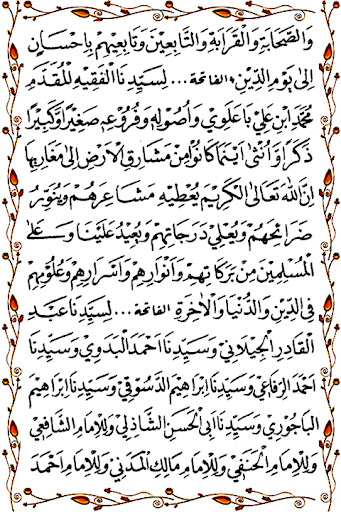 وَالصَّحَابَةِ وَالْقَرَابَةِ وَالتَّابِعِيْنَ وَتَابِعِيْهِمْ بِاِحْسَانٍ
اِلىٰ يَوْمِ الدِّيْنِ، الفاتحة... لِسَيِّدِنَا الْفَقِيْهِ الْمُقَدَّمِ
مُحَمَّدِ ابْنِ عَلِيٍّ بَاعَلَوِيْ وَاُصُوْلِهِ وَفُرُوْعِهِ صَغِيْرًا وَّكَبِيْرًا
ذَكَرًا وَّاُنْثٰى اَيْنَمَا كَانُوْا مِنْ مَشَارِقِ الْاَرْضِ اِلىٰ مَغَارِبِهَا
اِنَّ اللّٰهَ تَعَالىَ الْكَرِيْمَ يُعْطِيْهِ مَشَاعِرَهُمْ وَيُنَوِّرُ
ضَرَائِحَهُمْ وَيُعْلِيْ دَرَجَاتِهِمْ وَيُعِيْدُ عَلَيْنَا وَعَلَى
الْمُسْلِمِيْنَ مِنْ بَرَكَاتِهِمْ وَاَنْوَارِهِمْ وَاَسْرَارِهِمْ وَعُلُوْمِهِمْ
فِى الدِّيْنِ وَالدُّنْيَا وَالْاٰخِرَةِ الفاتحة... لِسَيِّدِنَا عَبْدِ
الْقَادِرِ الْجِيْلَانِيْ وَسَيِّدِنَا اَحْمَدَ الْبَدَوِيْ وَسَيِّدِنَا
اَحْمَدَ الرِّفَاعِيْ وَسَيِّدِنَا اِبْرَاهِيْمَ الدَّسُوْقِيْ وَسَيِّدِنَا اِبْرَاهِيْمَ
الْبَاجُوْرِيْ وَسَيِّدِنَا اَبِى الْحَسَنِ الشَّاذِلِيْ وَلِلْاِمَامِ الشَّافِعِيْ
وَلِلْاِمَامِ الْحَنَفِيْ وَلِلْاِمَامِ مَالِكِ الْمَدَنِيْ وَلِلْاِمَامِ اَحْمَدَ